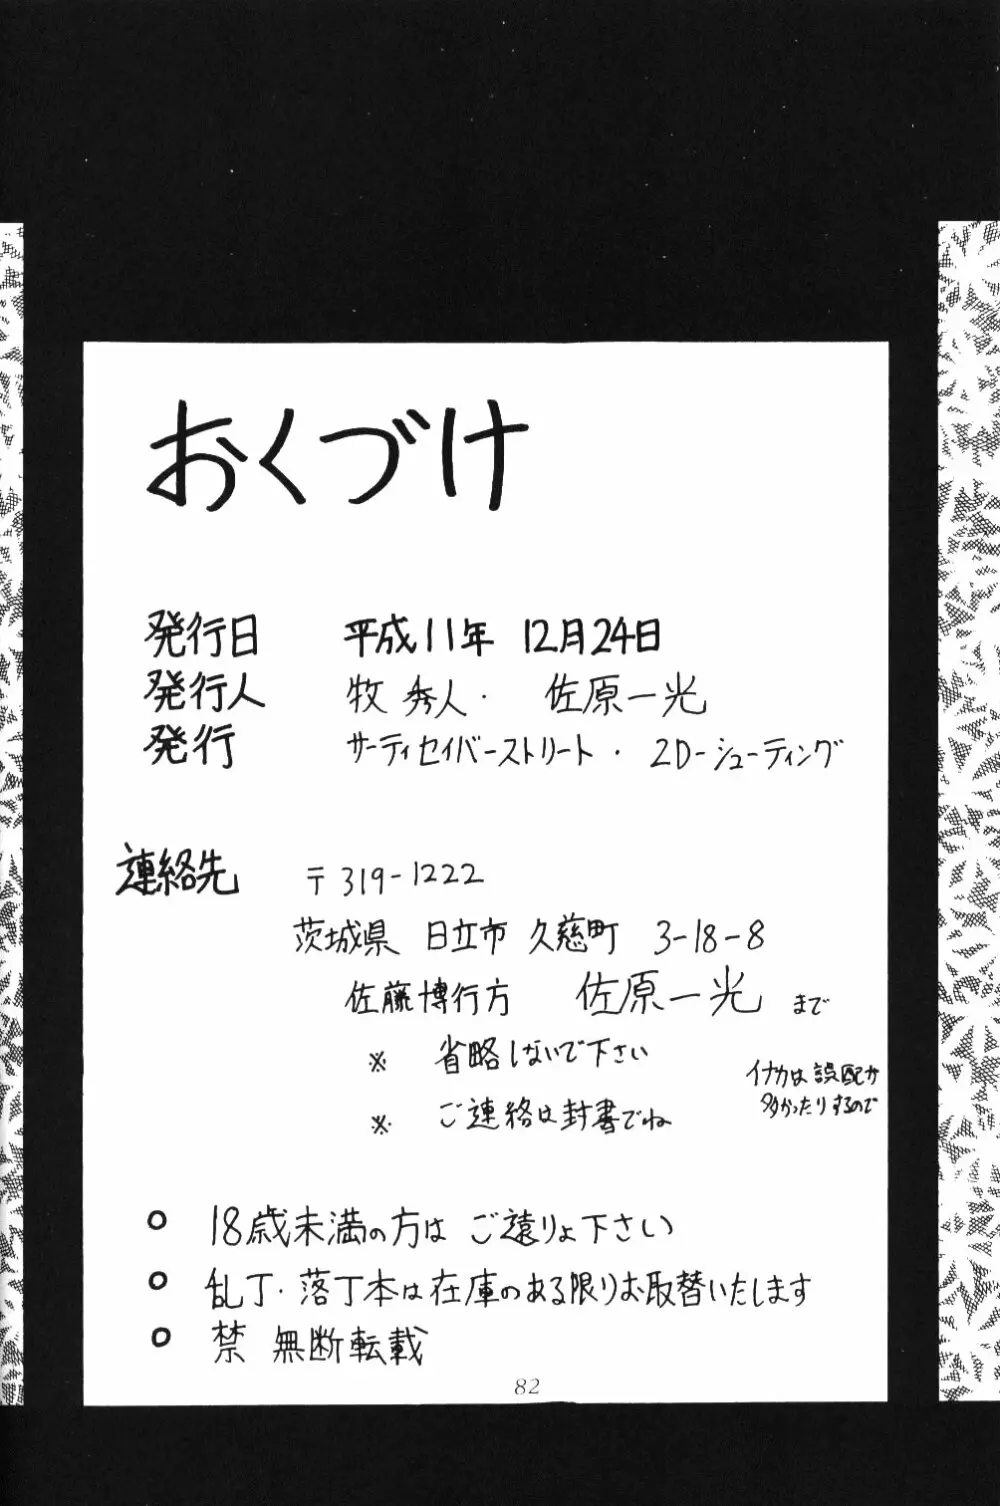 おくづけ
発行日 平成11年 12月24日
発行人 牧 秀人・ 佐原一光
発行 サーティセイバーストリート・2D-シューティング
連絡先 〒319-1222
茨城県 日立市 久慈町 3-18-8
佐藤博行方 佐原一光 まで
※ 省略しないで下さい
※ ご連絡は封書でね
イナカは誤配が
多かったりするので
○ 18歳未満の方は ご遠りょ下さい
○ 乱丁・落丁本は在庫のある限りお取替いたします
○ 禁 無断転載
82